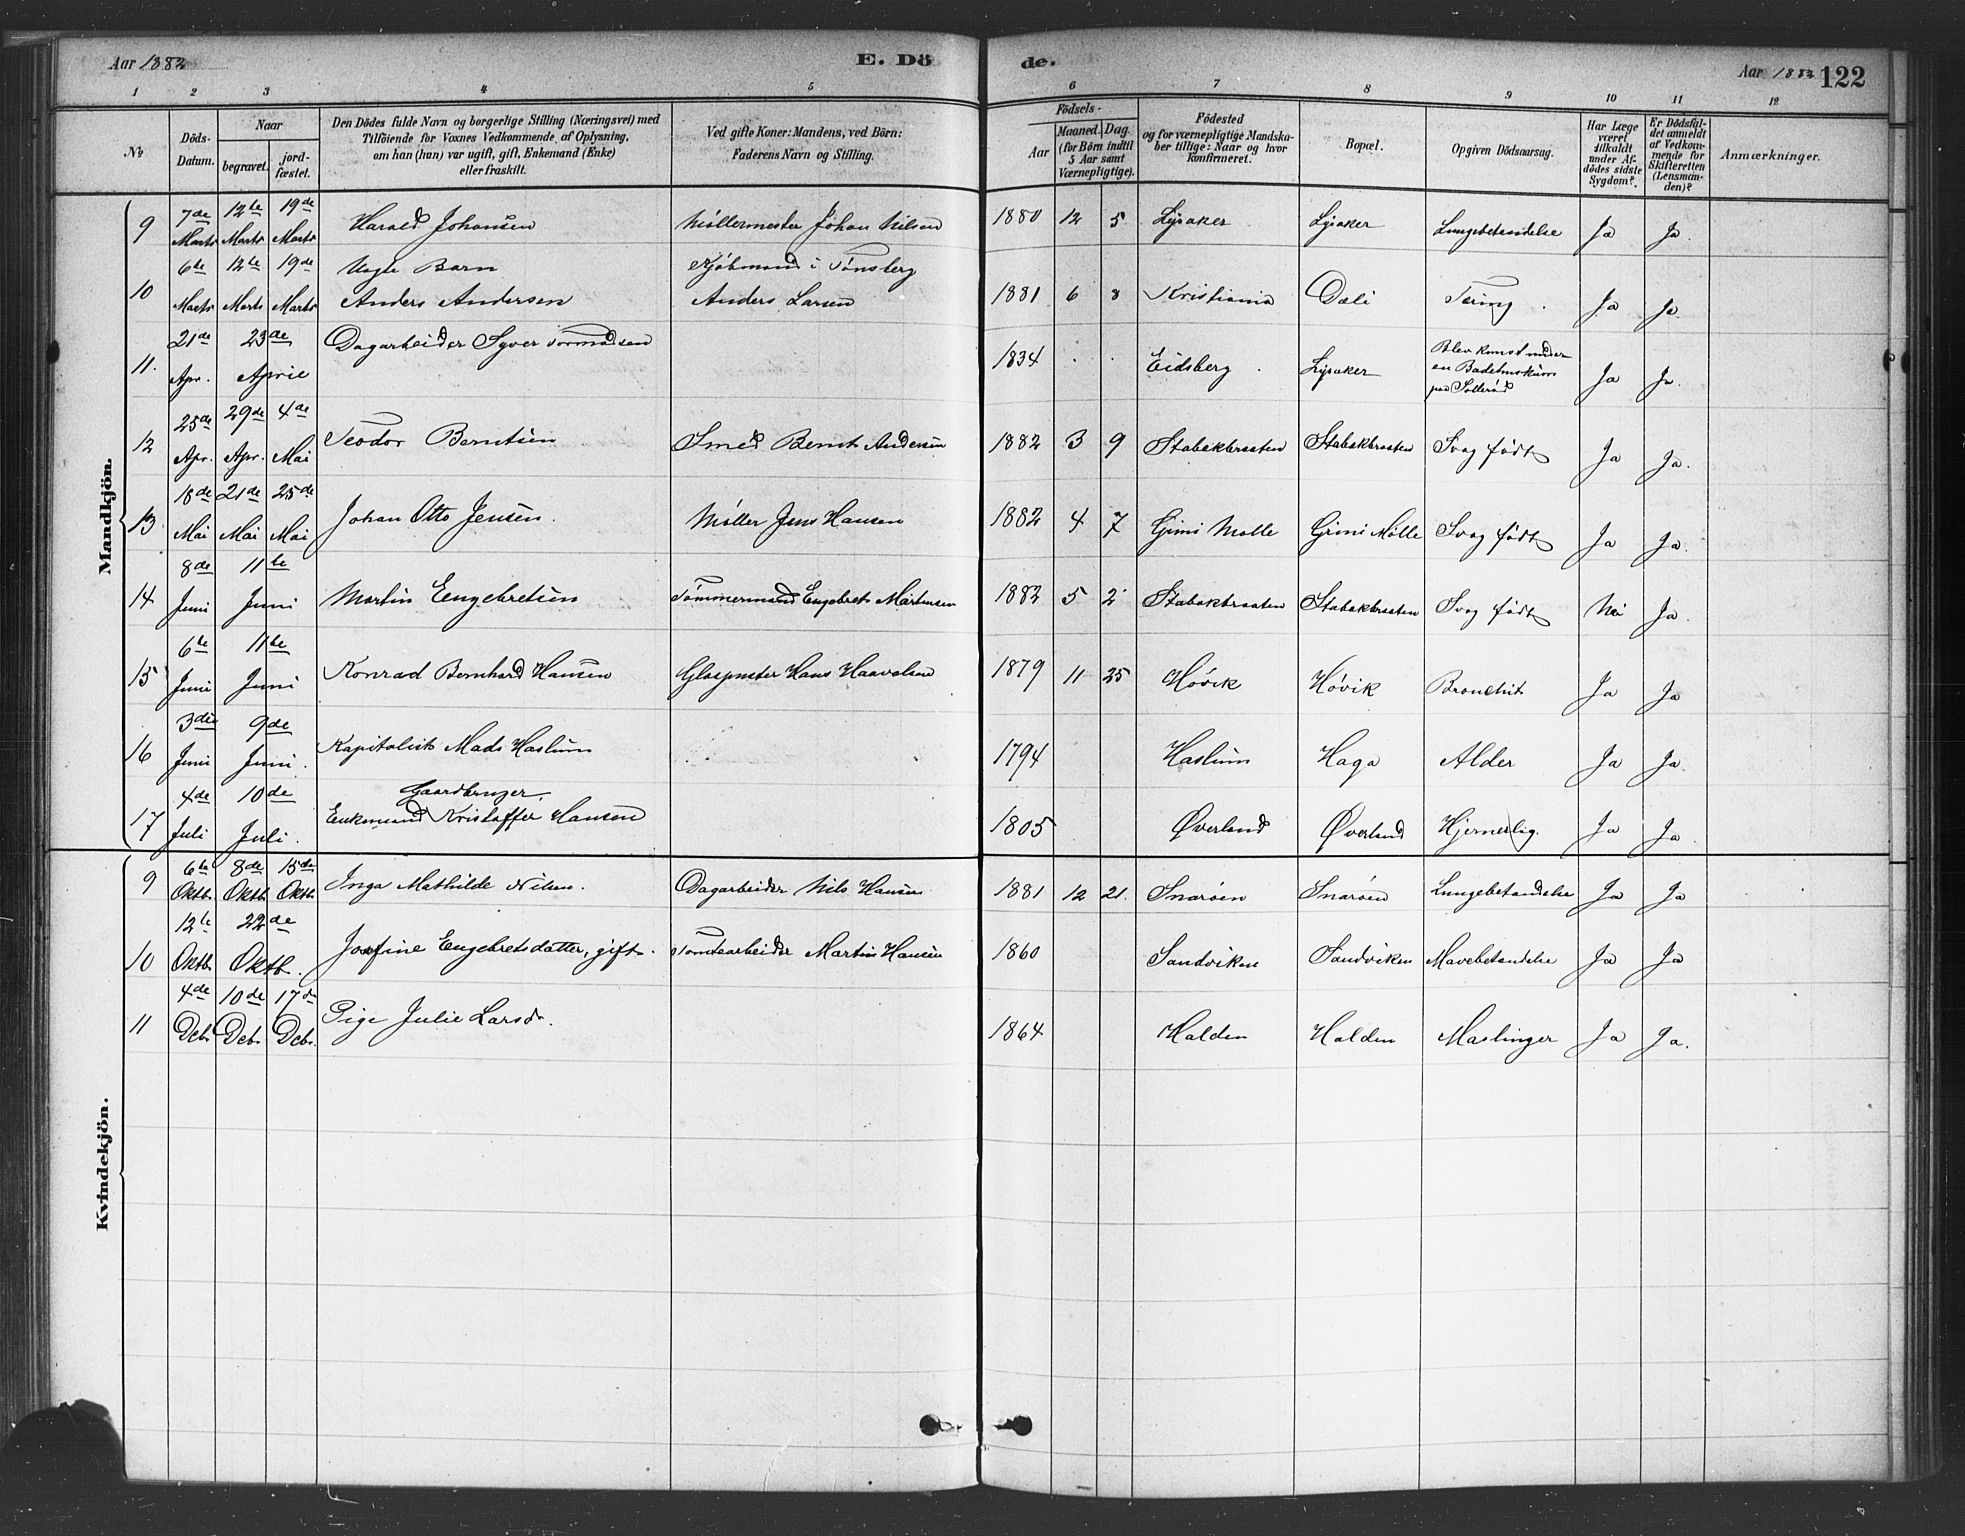 Aar 1882 E. Dö de. Aar 1882 122
1 2 3 4 5 6 7 8 9 10 11 12
No
Döds-Datum.
Naar
begravet. jord-fæstet.
Den Dödes fulde Navn og borgerlige Stilling (Næringsvei) med
Tilföiende for Voxnes Vedkommende af Oplysning,
om han (hun) var ugift, gift, Enkemand (Enke)
eller fraskilt.
Ved gifte Koner: Mandens, ved Börn:
Faderens Navn og Stilling.
Födsels-
Aar Maaned. Dag.
(for Börn indtil
5 Aar samt
Værnepligtige).
Födested
og for værnepligtige Mandska-
ber tillige: Naar og hvor
konfirmeret.
Bopæl.
Opgiven Dödsaarsag.
Har Læge
været
tilkaldt
under Af-
dödes sidste
Sygdom?
Er Dödsfal-
det anmeldt
af Vedkom-
mende for
Skifteretten
(Lensman-
den)?
Anmærkninger.
Mandkjön.
9 7de Marts 12te Marts 19de Marts Harald Johansen Møllermester Johan Nilsen 1880 12 5 Lysaker Lysaker Lungebetændelse Ja Ja
10 6te Marts 12te Marts 19de Marts Uægte Barn Kjøbmand i Tønsberg
Anders Andersen Anders Larsen 1881 6 8 Kristiania Dæli Tæring Ja Ja
11. 21de Apr. 23de April Dagarbeider Syver Tormodsen 1834 Eidsberg Lysaker Blev knust under
en
paa Ja Ja
12 25de Apr. 29de Apr. 4de Mai Teodor Berntsen Smed Bernt Andersen 1882 3 9 Stabækbraaten Stabækbraaten Svag født Ja Ja.
13 18de Mai 21de Mai 25de Mai Johan Otto Jensen. Møller Jens Hansen 1882 4 7 Grini Mølle Grini Mølle Svag født Ja Ja.
14 8de Juni 11te Juni Martin Eengebretsen Tømmermand Engebret Martinsen 1882 5 2 Stabækbraaten Stabækbraaten Svag født Nei Ja.
15 6te Juni 11te Juni Konrad Bernhard Hansen Glaspuster Hans Haavelsen 1879 11 25 Høvik Høvik Bronchit Ja Ja
16 3die Juni 9de Juni. Kapitalist Mads Haslum 1794 Haslum Haga Alder Ja Ja
17 4de Juli 10de Juli. Gaardbruger,
Enkemand Kristoffer Hansen 1805 Øverland Øverland Hjerneslag. Ja Ja
Kvindekjön.
9 6te Oktb. 8de Oktb. 15de Oktb. Inga Mathilde Nilsen. Dagarbeider Nils Hansen 1881 12 21. Snarøen Snarøen Lungebetændelse Ja Ja
10 12te Oktb. 22de Oktb. Josefine Engebretsdatter, gift. Tomtearbeider Martin Hansen 1860 Sandviken Sandviken Mavebetændelse Ja Ja
11 4de Decb. 10de Decb. 17de Decb. Pige Julie Larsd. 1864 Halden Halden Mæslinger Ja Ja.